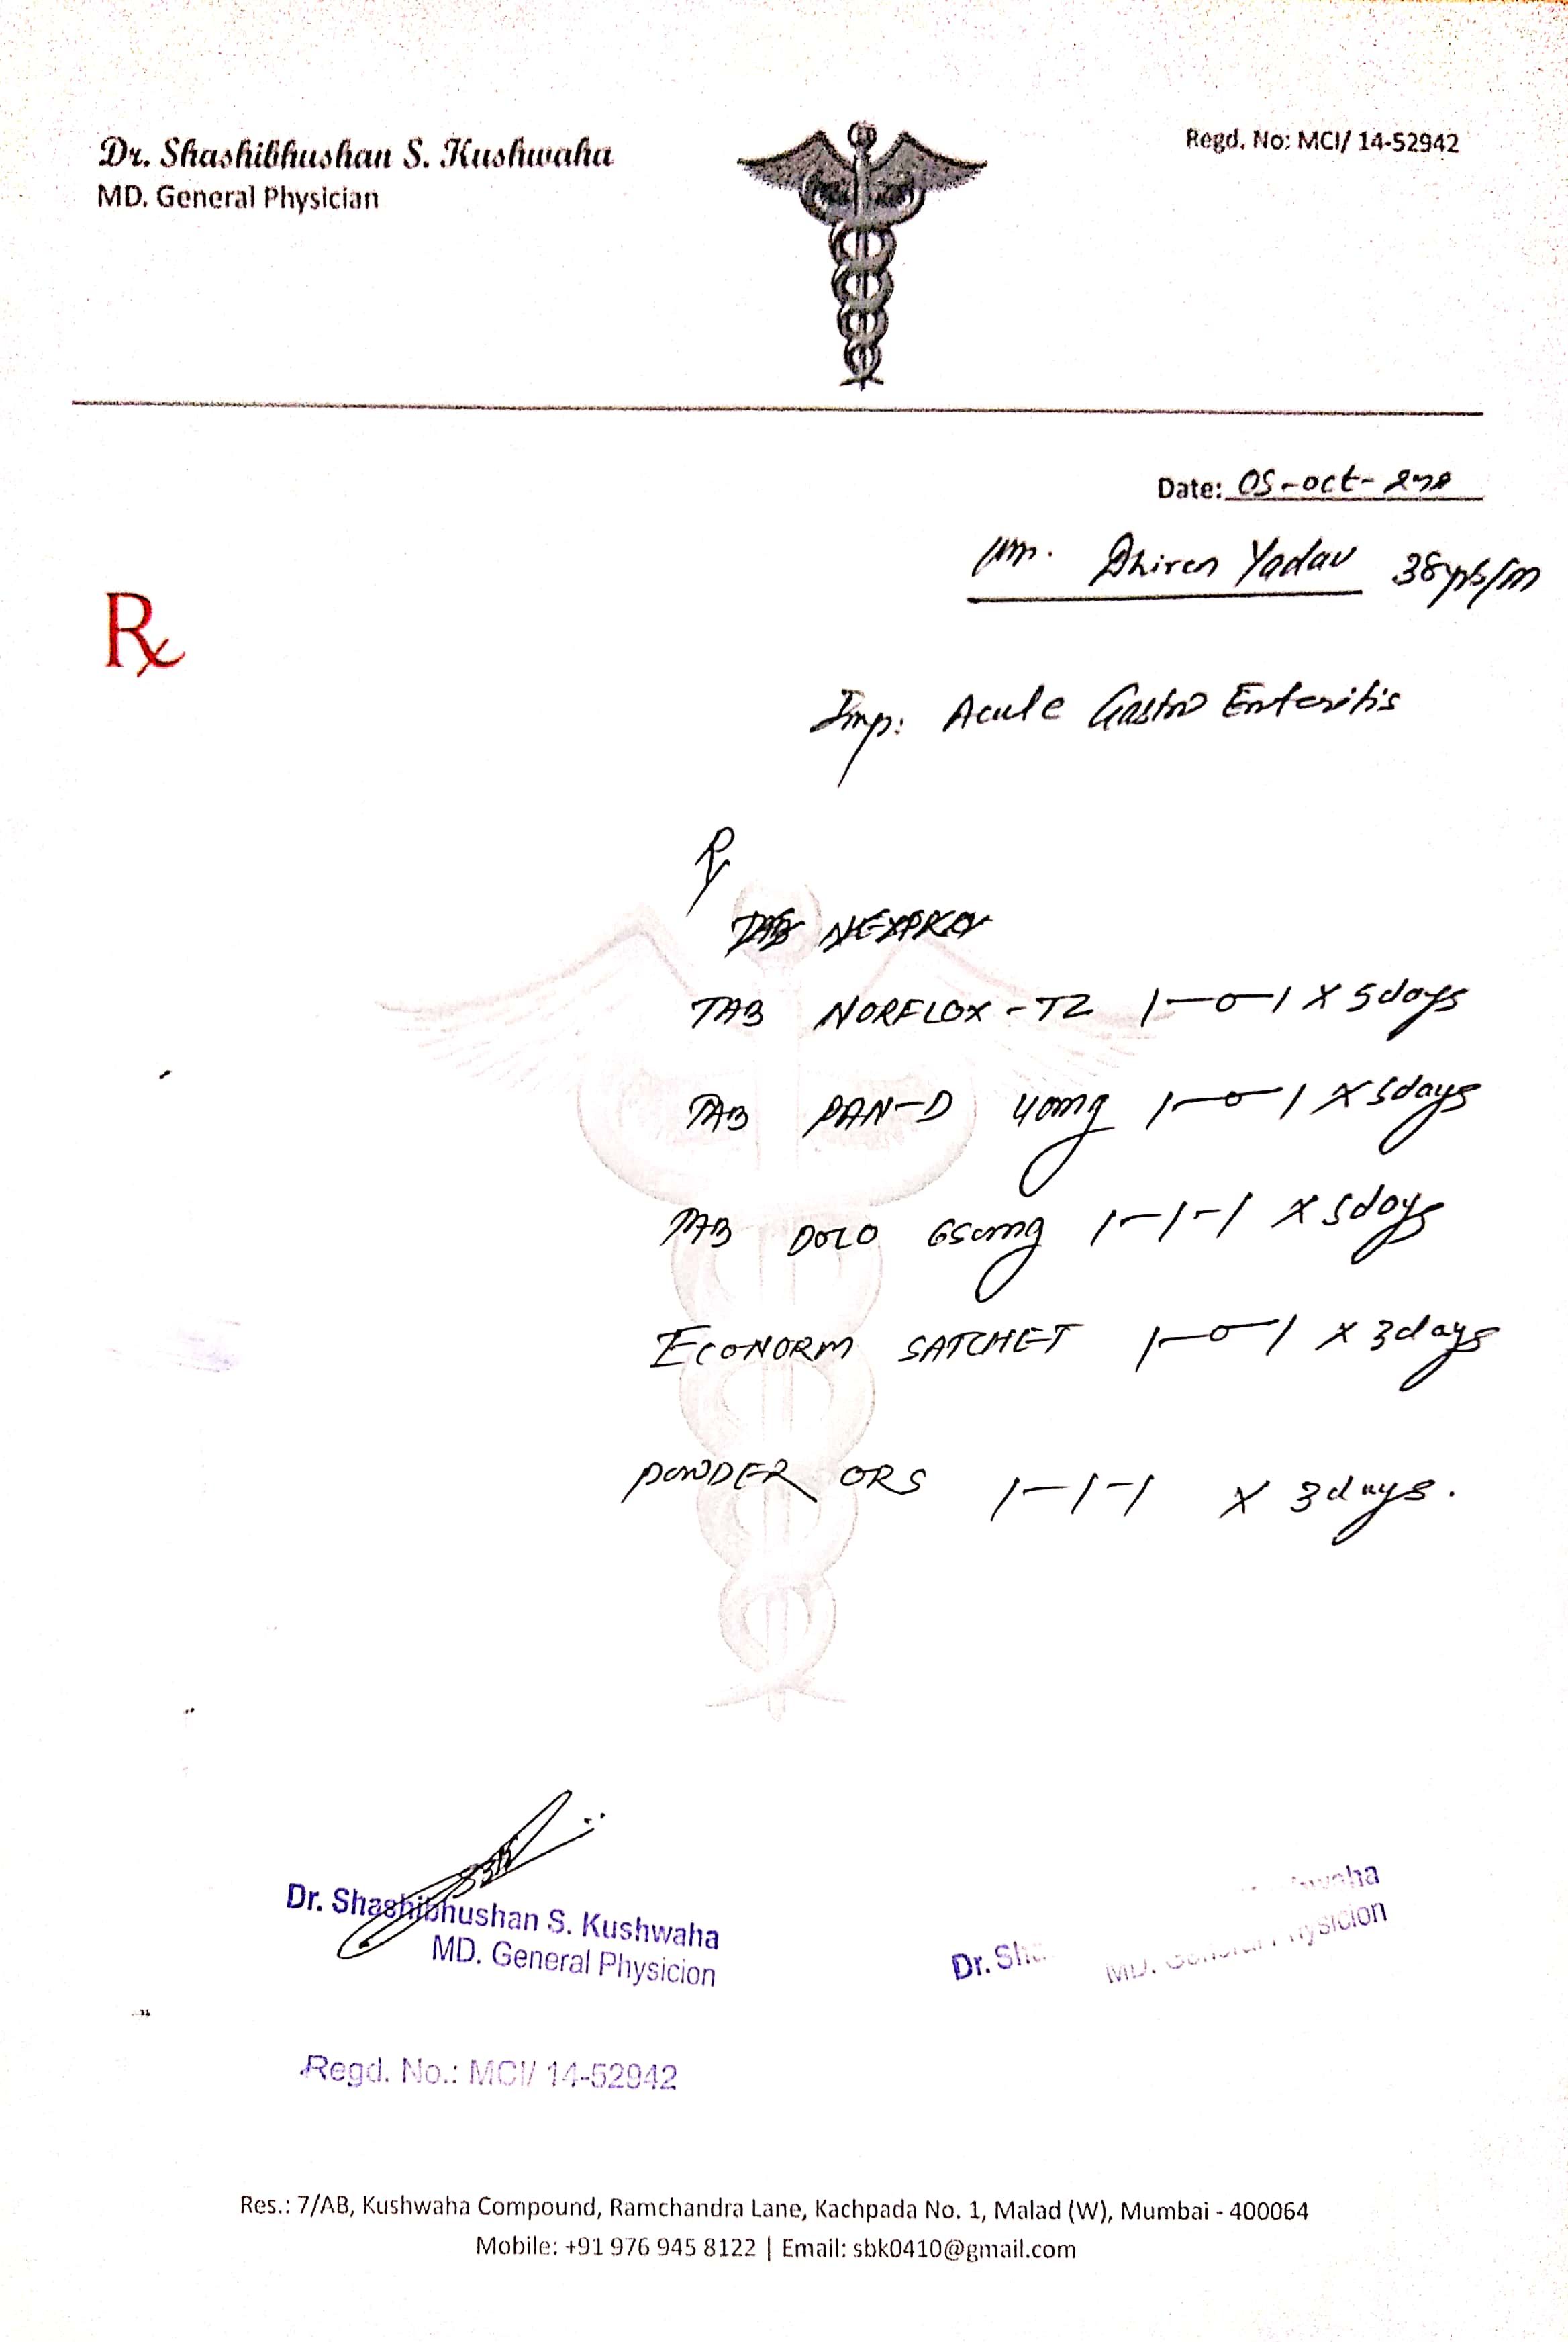 Dr. Shashibhushan S. Kushwaha
MD. General Physician
Regd. No: MCI/ 14-52942
Date: 05-oct-
Dhiren Yadav 38yrs/m
Rx
Imp: Acute Gastro Enteritis
TAB NORFLOX-TZ 1-0-1 X 5days
TAB PAN-D 40mg 1-0-1 X 5days
TAB DOLO 650mg 1-1-1 X 5days
ECONORM SATCHET 1-0-1 X 3days
POWDER ORS 1-1-1 X 3days.
Dr. Shashibhushan S. Kushwaha
MD. General Physicion
Regd. No.: MCI/ 14-52942
Res.: 7/AB, Kushwaha Compound, Ramchandra Lane, Kachpada No. 1, Malad (W), Mumbai - 400064
Mobile: +91 976 945 8122 | Email: sbk0410@gmail.com